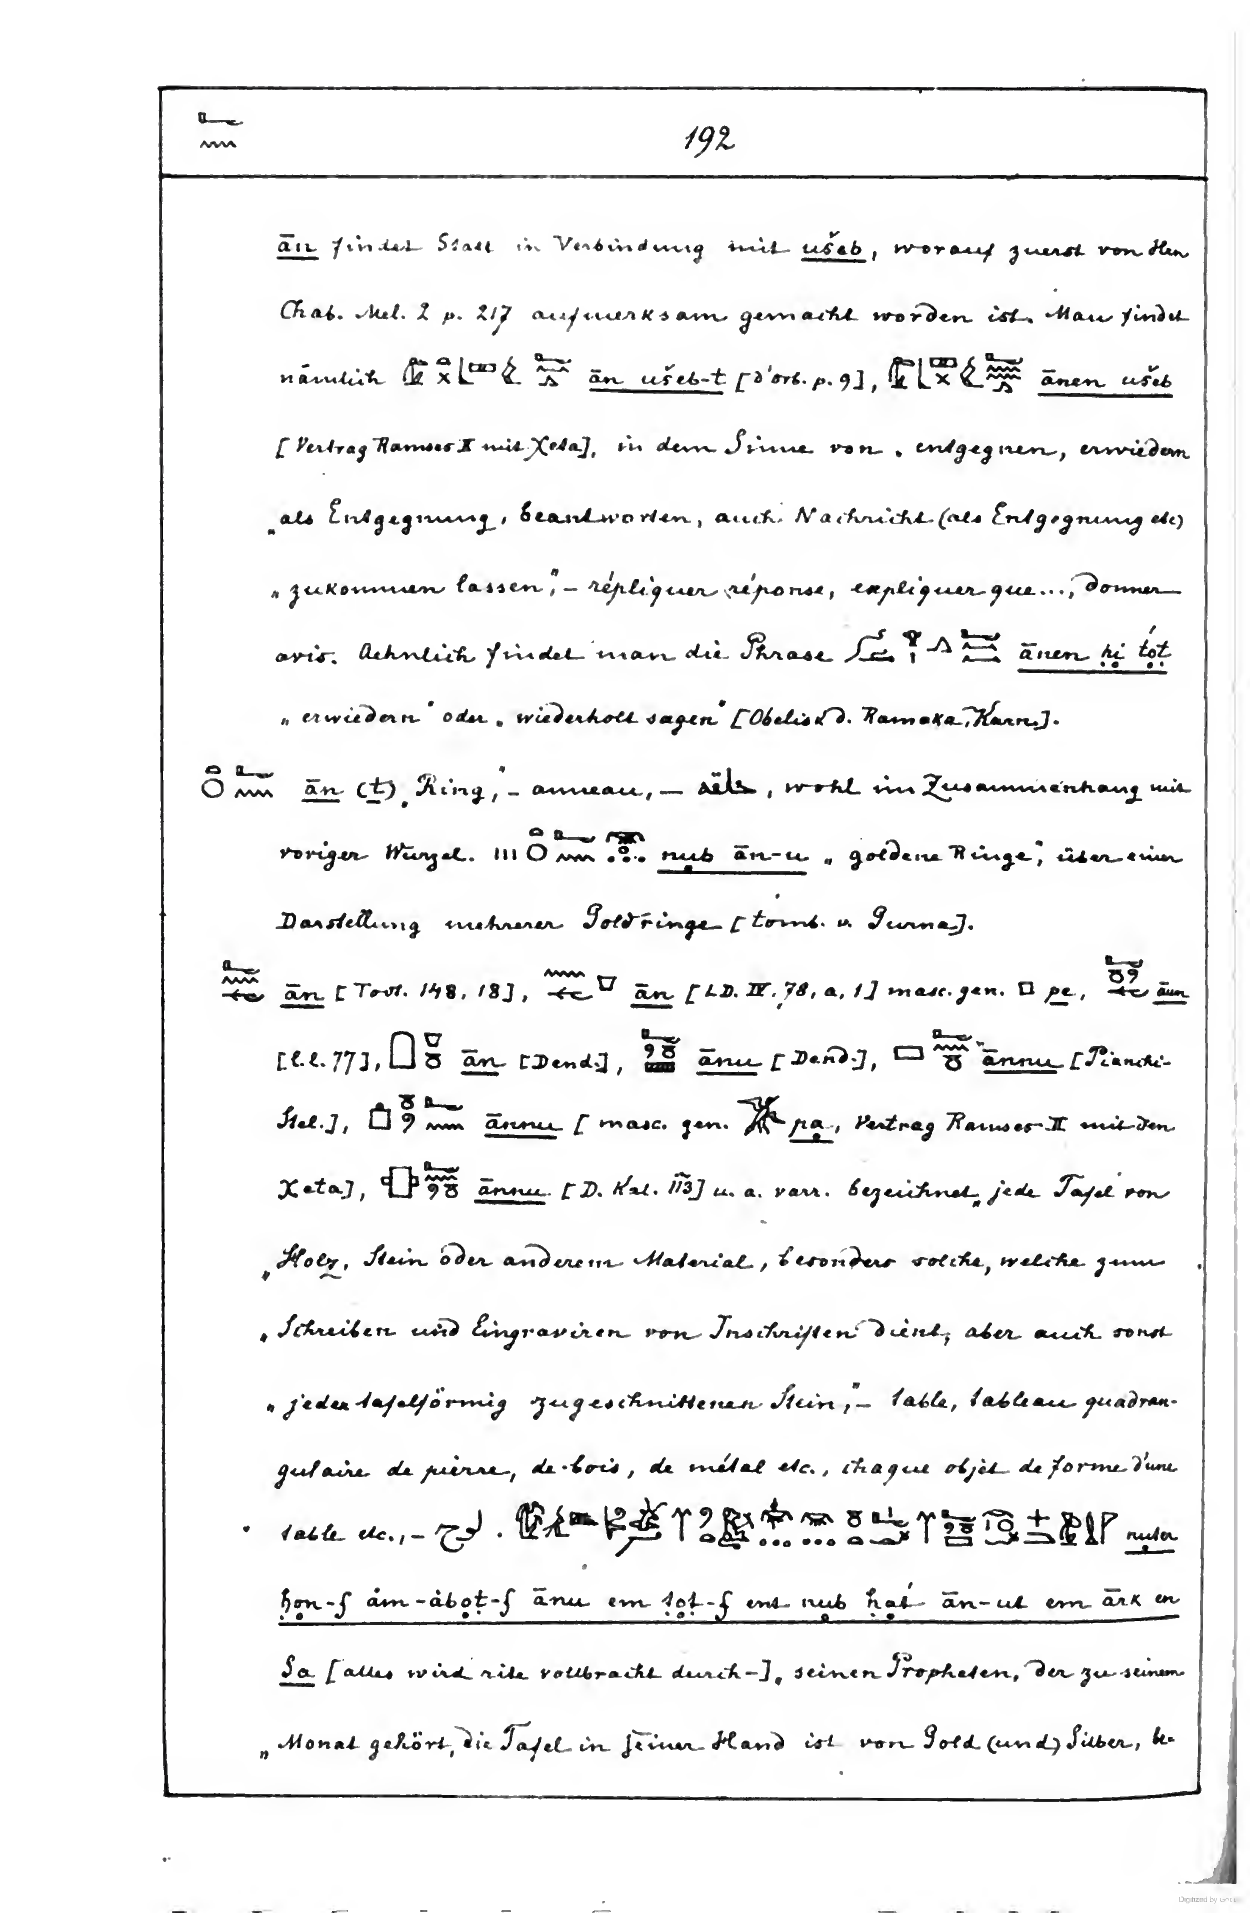 192
ān findet Statt in Verbindung mit ušeb, worauf zuerst von Hen
Chab. Mel. 2 p. 217 aufmerksam gemacht worden ist. Man findet
nämlich ān ušeb-t [d'Orb. p. 9], ānen ušeb
[Vertrag Ramses II mit Xeta], in dem Sinne von „entgegnen, erwiedern
„als Entgegnung, beantworten, auch: Nachricht (als Entgegnung etc)
„zukommen lassen“, – répliquer, réponse, expliquer que..., donner
avis. Aehnlich findet man die Phrase ānen ḥi ṭoṭ
„erwiedern“ oder „wiederholt sagen“ [Obelisk d. Ramaka, Karn.].
ān (t) „Ring“, – anneau, – , wohl im Zusammenhang mit
voriger Wurzel. nub ān-u „goldene Ringe“, über einer
Darstellung mehrerer Goldringe [tomb. v. Gurna].
ān [Todt. 148, 18], ān [LD. IV. 78, a, 1] masc. gen. pe, āun
[l.l. 77], ān [Dend.], ānu [Dend.], ānnu [Pianchi-
Stel.], ānnu [masc. gen. pa, Vertrag Ramses II mit den
Xeta], ānnu [D. Kal. 113] u. a. varr. bezeichnet „jede Tafel von
„Holz, Stein oder anderem Material, besonders solche, welche zum
„Schreiben und Eingraviren von Inschriften dient, aber auch sonst
„jeden tafelförmig zugeschnittenen Stein“, – table, tableau quadran-
gulaire de pierre, de bois, de métal etc., chaque objet de forme d'une
table etc., – لوح. nuter
ḥon-f ȧm-ȧboṭ-f ānu em ṭoṭ-f ent nub ḥaṭ ān-ut em ārk en
Sa [alles wird rite vollbracht durch –] „seinen Propheten, der zu seinem
„Monat gehört, die Tafel in seiner Hand ist von Gold (und) Silber, be-
Digitized by Google